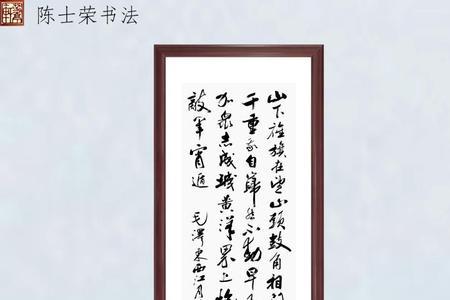 陈士荣书法
山下旌旗在望山头鼓角相
千重我自巋然不动早
加眾志成城黄洋界上
敵军宵遁 毛澤东西江月